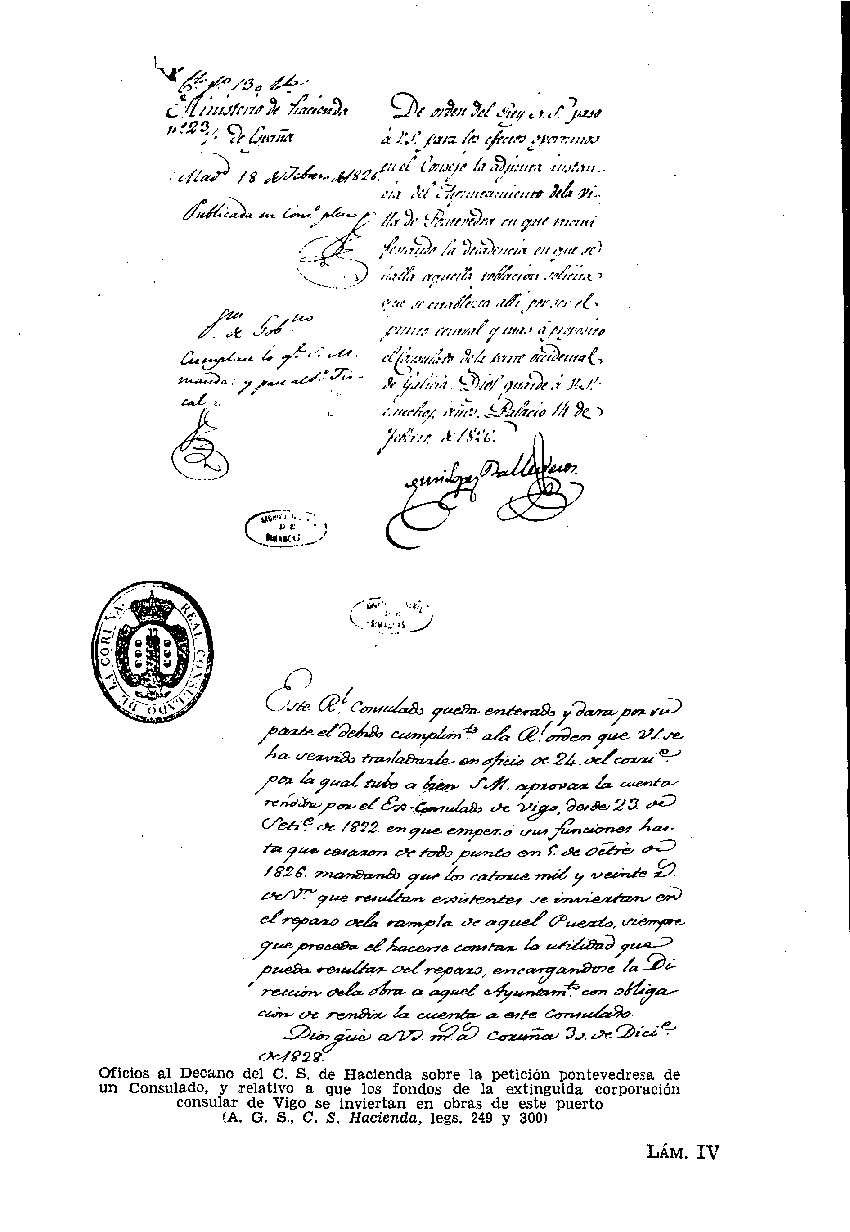 Ministerio de Hacienda
de Coruña
Mad.d 18 de Febro de 1826
Publicada en Cons.o pleno
de Gob.no
Cumplase lo q.e S. M.
manda: y pase al S.r Fis-
cal
De orden del Rey N. S.r paso
á V.S. para los efectos oportunos
en el Consejo la adjunta instan-
cia del Ayuntamiento de la vi-
lla de Pontevedra en que mani
festando la decadencia en que se
halla aquella poblacion solicita
que se establezca alli por ser el
punto central y mas á proposito
el Consulado de la parte occidental
de Galicia. Dios guarde á V.S.
muchos años. Palacio 14 de
Febrero de 1826.
Luis Lopez Ballesteros
ARCHIVO
DE
SIMANCAS
REAL CONSULADO DE LA CORUÑA
ARCHIVO
DE
SIMANCAS
Este R.l Consulado queda enterado y dara por su
parte el debido cumplim.to a la R.l orden que V.S. se
ha servido trasladarle en oficio de 24 del corr.te
por la qual tubo a bien S.M. aprovar la cuenta
rendida por el Ex-Consulado de Vigo, desde 23 de
Seti.e de 1822 en que empezó sus funciones has-
ta que cesaron de todo punto en 5 de Octre de
1826. mandando que los catorce mil y veinte r.s
de V.n que resultan existentes se inviertan en
el reparo de la rampla de aquel Puerto, siempre
que preceda el hacerse constar la utilidad que
pueda resultar del reparo, encargandose la Di
rección de la obra a aquel Ayuntam.to con obliga
ción de rendir la cuenta a este Consulado.
Dios gue a V.S. m.s a.s Coruña 31 de Dici.e
de 1828.
Oficios al Decano del C. S. de Hacienda sobre la petición pontevedresa de
un Consulado, y relativo a que los fondos de la extinguida corporación
consular de Vigo se inviertan en obras de este puerto
(A. G. S., C. S. Hacienda, legs. 249 y 300)
LÁM. IV